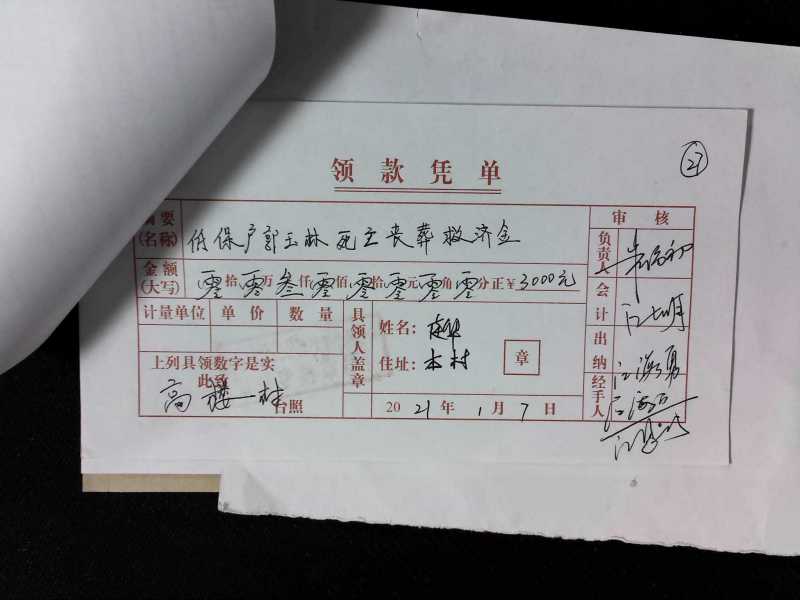 27
领款凭单
摘要(名称) 低保户郭玉林死亡丧葬救济金
审核
负责人
金额(大写) 零拾零万叁仟零佰零拾零元零角零分正¥3000元
会计
计量单位 单价 数量
具领人盖章
姓名:
住址: 本村
章
出纳
上列具领数字是实
此致
高楼村 台照
2021年1月7日
经手人